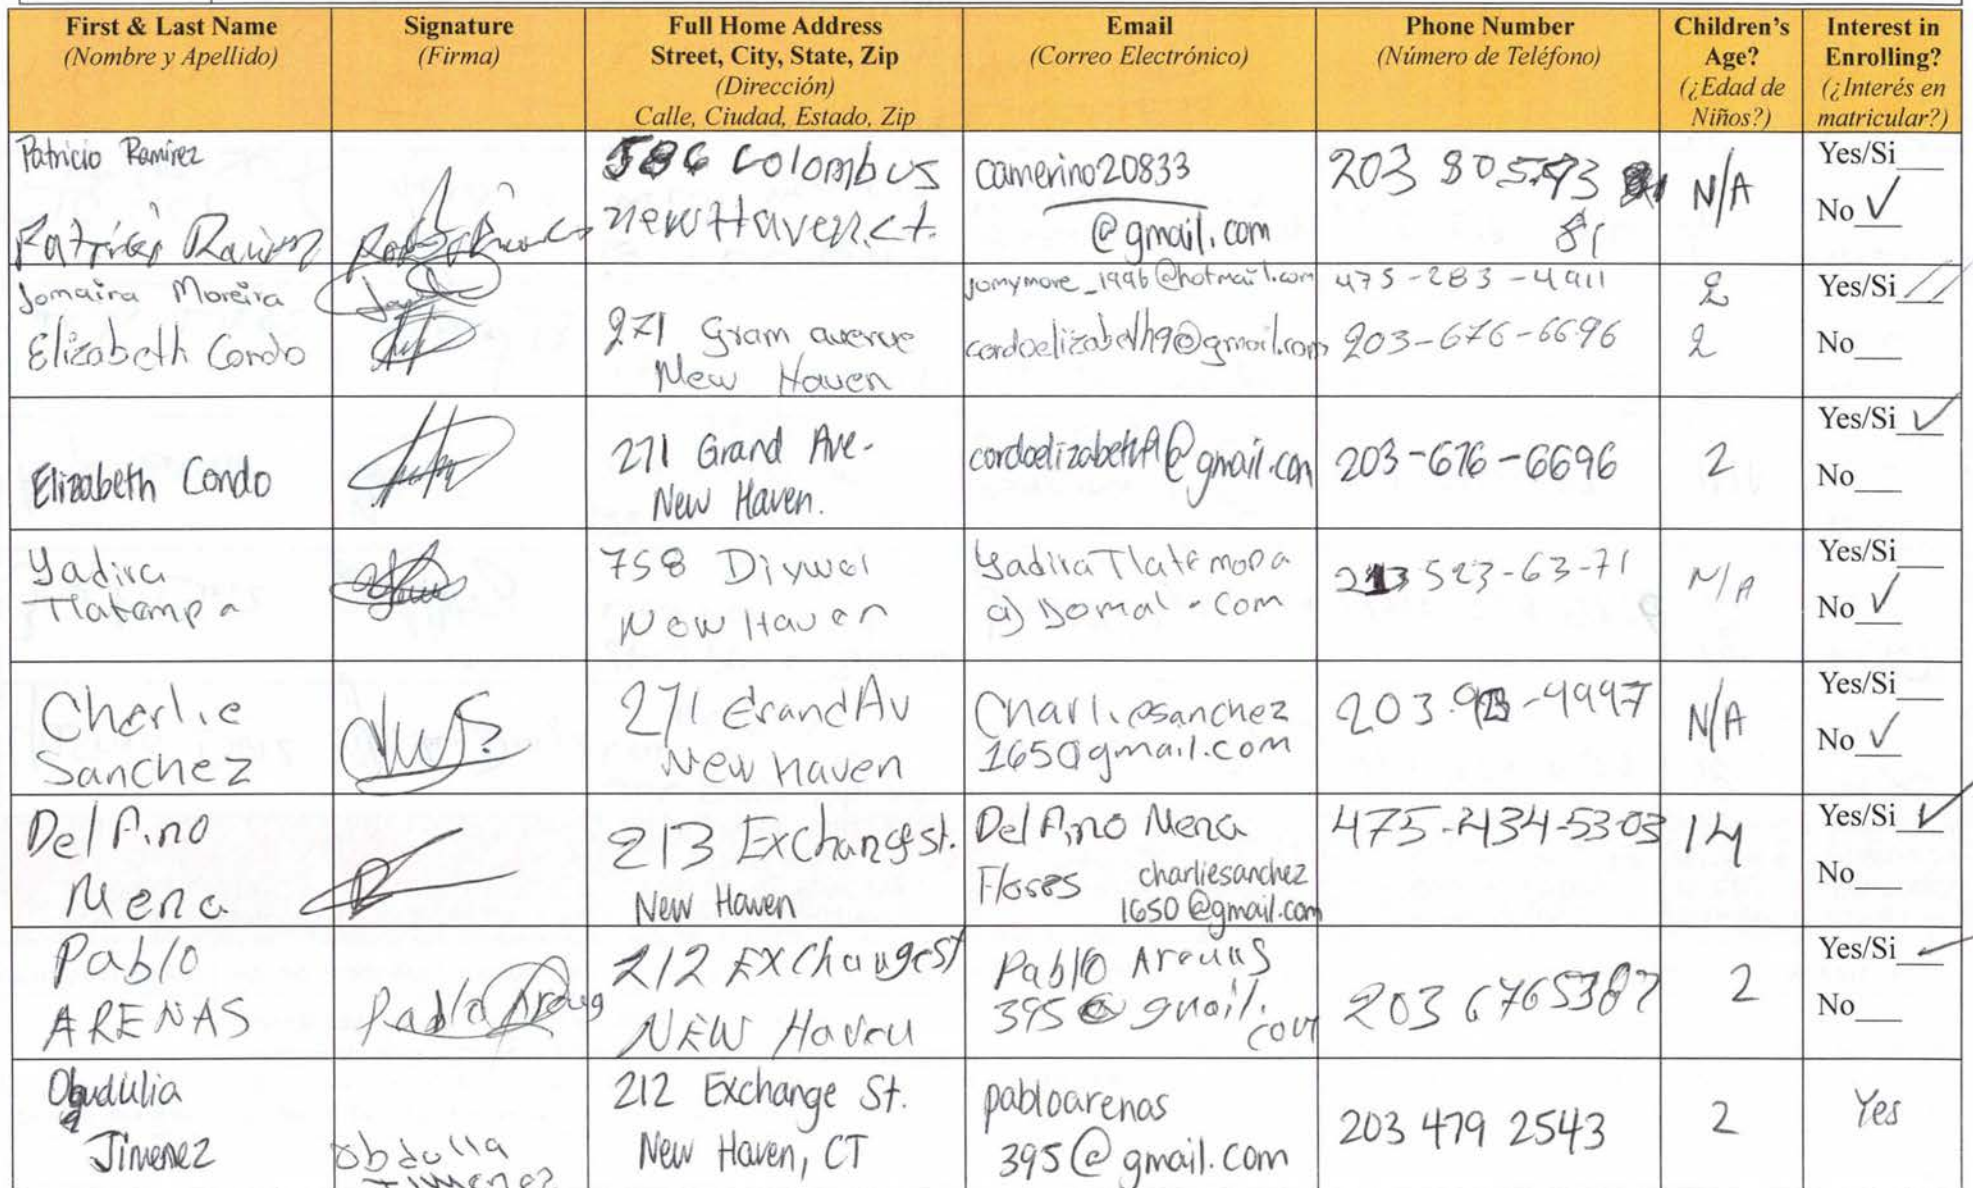 First & Last Name
(Nombre y Apellido)
Signature
(Firma)
Full Home Address
Street, City, State, Zip
(Dirección)
Calle, Ciudad, Estado, Zip
Email
(Correo Electrónico)
Phone Number
(Número de Teléfono)
Children's
Age?
(¿Edad de
Niños?)
Interest in
Enrolling?
(¿Interés en
matricular?)
Patricio Ramirez
586 Colombus
new Haven.ct.
camerino20833
@gmail.com
203 805
81
N/A
Yes/Si
No ✓
Jomaira Moreira
Elizabeth Condo
271 Gram avenue
New Haven
jomymore_1996@hotmail.com
cordoelizabeth9@gmail.com
475-283-4911
203-676-6696
2
2
Yes/Si
No
Elizabeth Condo
271 Grand Ave.
New Haven.
cordoelizabeth9@gmail.com
203-676-6696
2
Yes/Si ✓
No
Yadira
Tlatempa
758 Diywel
New Haven
Yadira Tlatemopa
523-63-71
N/A
Yes/Si
No ✓
Charlie
Sanchez
271 Grand Av
New haven
Charliesanchez
1650gmail.com
203 -9997
N/A
Yes/Si
No ✓
Delfino
Mena
213 Exchangst.
New Haven
Delfino Mena
Flores
charliesanchez
1650@gmail.com
475-2434-5303
14
Yes/Si ✓
No
Pablo
ARENAS
Pablo Arenas
212 EXChangest
NEW Haven
Pablo Arenas
395@gmail.
com
203 6765387
2
Yes/Si ✓
No
Obudulia
Jimenez
Obdulia
Jimenez
212 Exchange St.
New Haven, CT
pabloarenas
395@gmail.com
203 479 2543
2
Yes